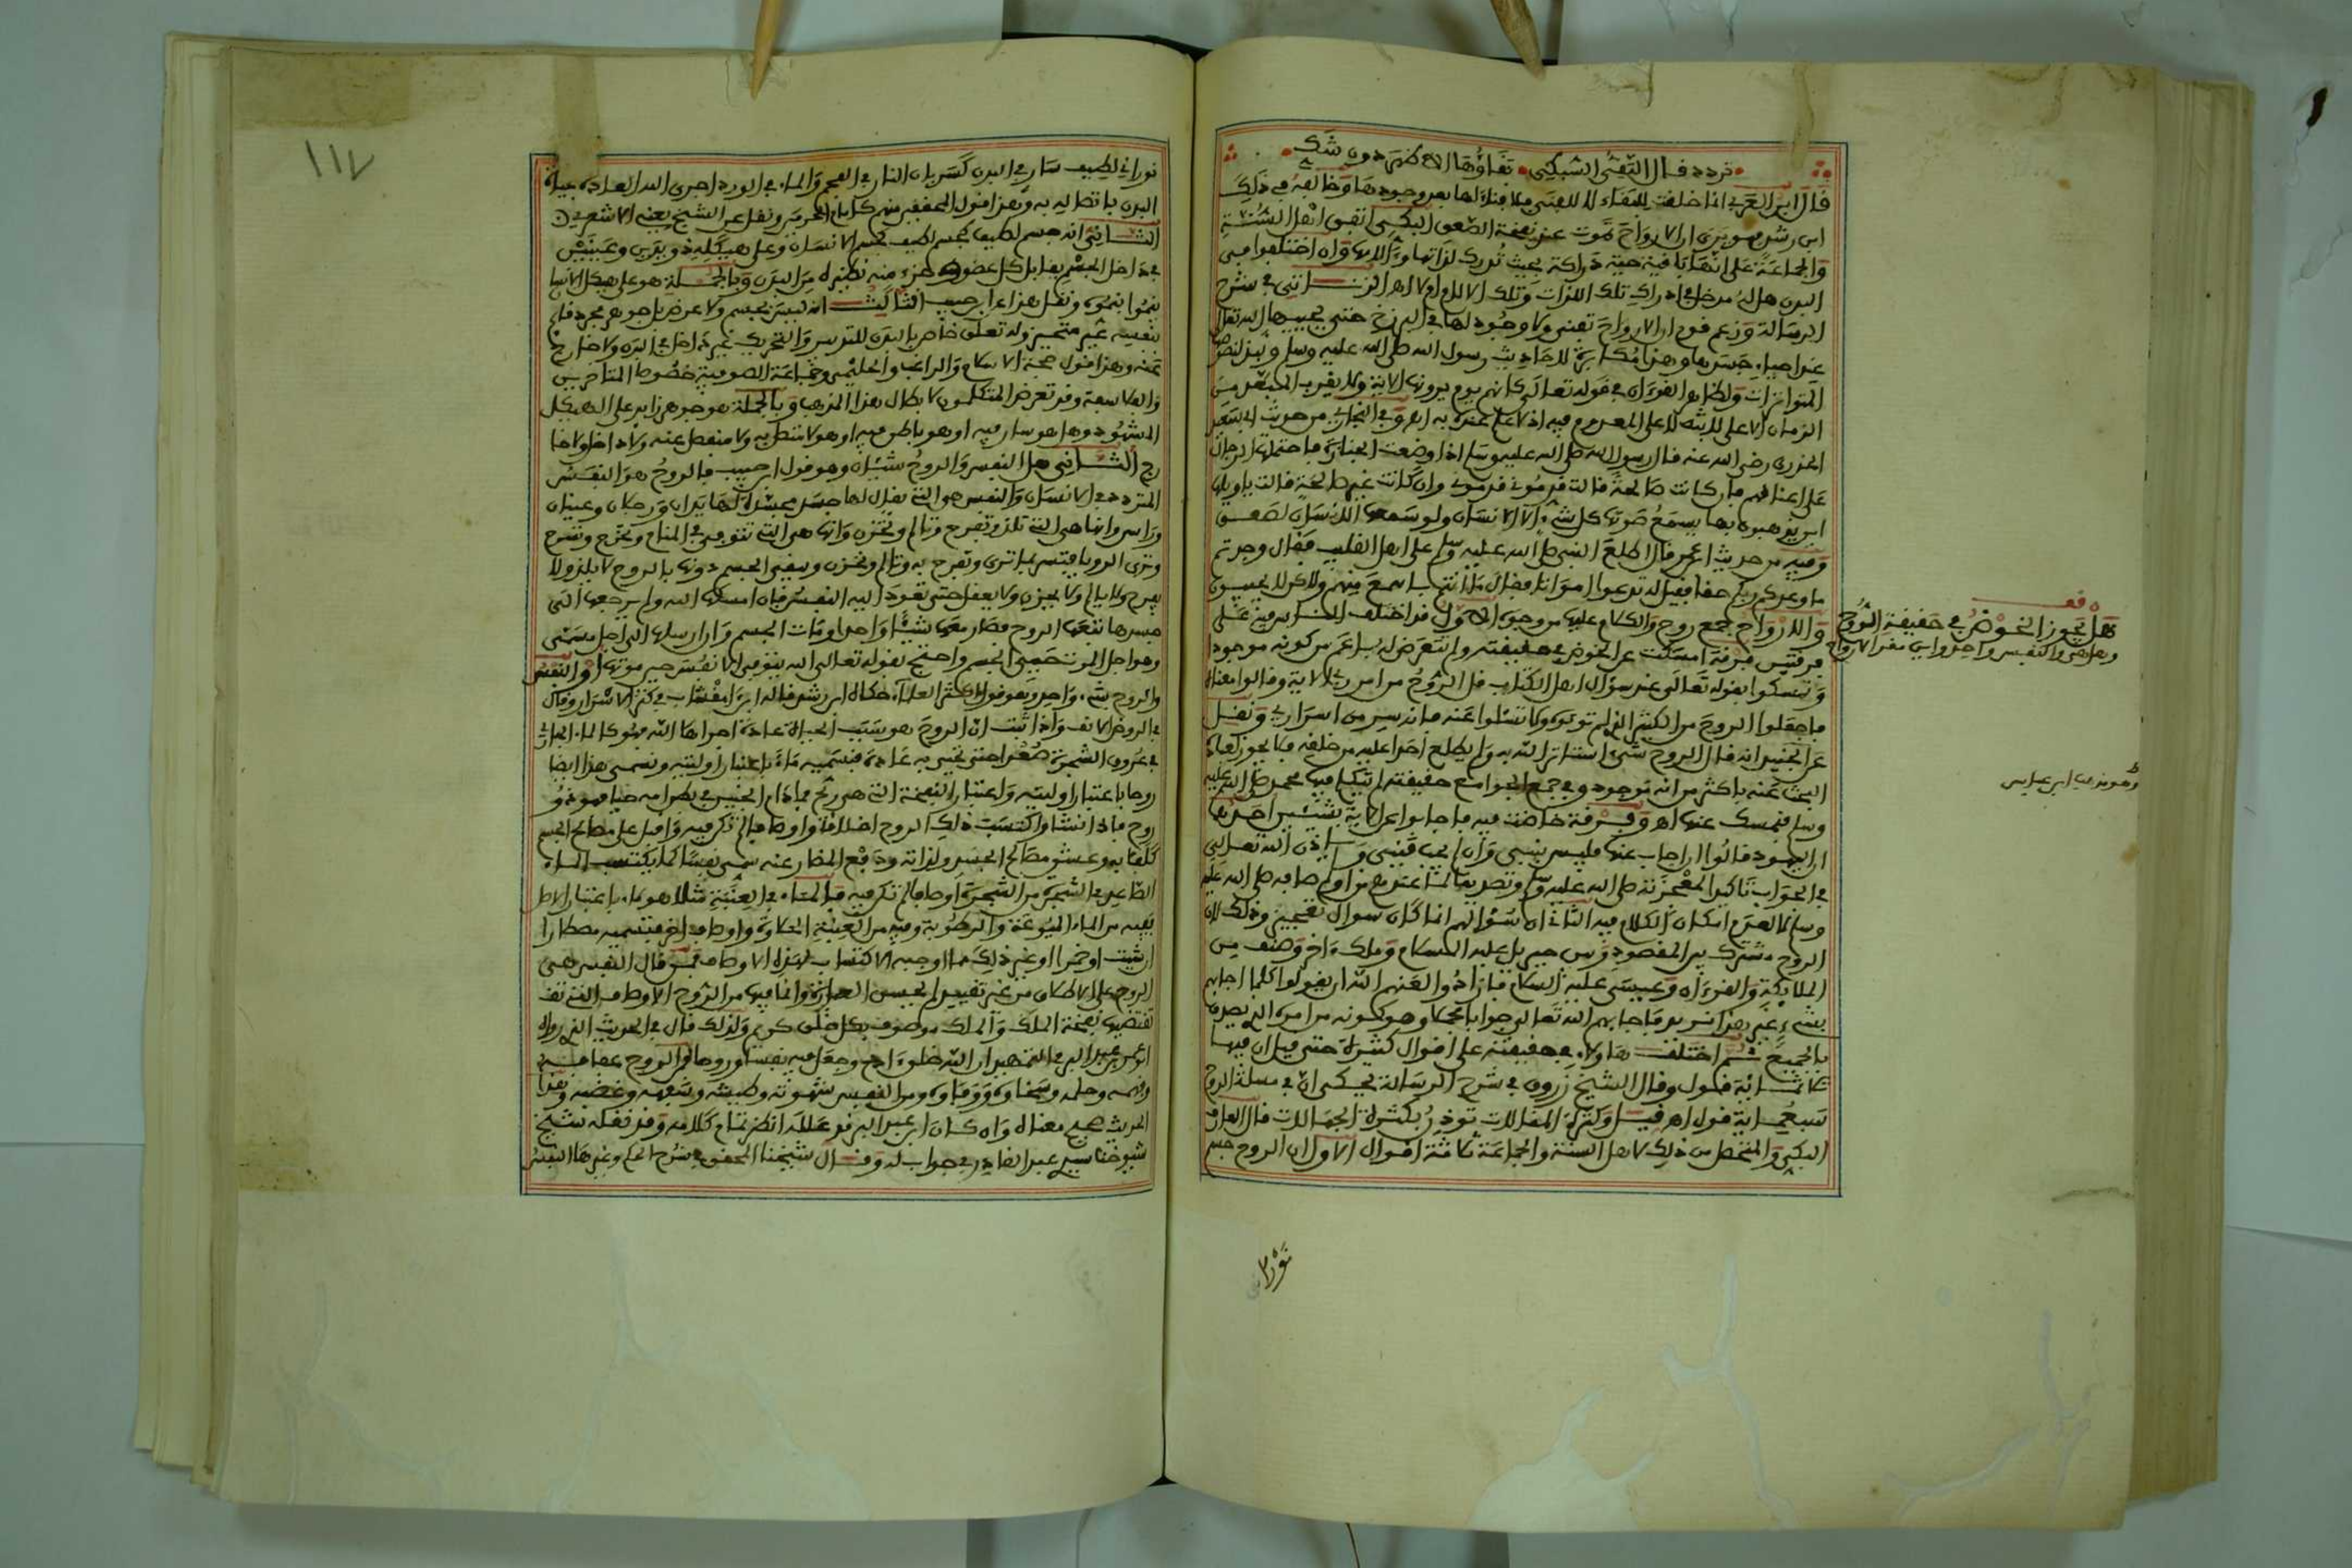 تردد قال التقي السبكي بقاؤها الأظهر دون شك
قال ابن العربي انما خلقت للبقاء لا للفنى فلا فناء لها بعد وجودها وخالفه في ذلك
ابن رشد فهو يرى ان الارواح تموت عند نفخة الصعق البكي اتفق اهل السنة
والجماعة على انها باقية حية دراكة بحيث تدرك لذاتها وءالامها وان اختلفوا هل
البدن هل له مدخل في ادراك تلك اللذات وتلك الالام ام لا اهـ الزناتي في شرح
الرسالة وزعم قوم ان الارواح تفنى ولا وجود لها في البرزخ حتى يحييها الله تعالى
عند احياء جسدها وهذا مكابرة للاحاديث رسول الله صلى الله عليه وسلم
المتواترات ولظاهر القرءان في قوله تعالى كانهم يوم يرونها الاية
الخدري رضي الله عنه قال رسول الله صلى الله عليه وسلم اذا وضعت الجنازة فاحتملها الرجال
على اعناقهم فان كانت صالحة قالت قدموني قدموني وان كانت غير صالحة قالت يا ويلها
اين يذهبون بها يسمع صوتها كل شيء الا الانسان ولو سمعها الانسان لصعق
وفيه من حديث ابن عمر قال اطلع النبي صلى الله عليه وسلم على اهل القليب فقال وجدتم
ما وعدكم ربكم حقا فقيل له تدعوا امواتا فقال ما انتم باسمع منهم ولاكن لا يجيبون
والارواح جمع روح والكلام عليها من وجوه الاول قد اختلف الناس فيه على
فرقتين فرقة امسكت عن الخوض في حقيقته ولم تتعرض له باعم من كونه موجودا
وتمسكوا بقوله تعالى عند سؤال اهل الكتاب قل الروح من امر ربي الاية وقالوا معناه
فاجعلوا الروح من الكثير الذي لم توتوه ولا تسئلوا عنه فانه سر من اسراري ونقل
عن الجنيد انه قال الروح شيء استاثر الله به ولم يطلع احدا عليه من خلقه فلا يجوز لعباده
البحث عنه باكثر من انه موجود وفي جمع الجوامع حقيقته لم يتكلم فيها محمد صلى الله عليه
وسلم فنمسك عنها اهـ وفرقة خاضت فيه فاجابوا عن الاية بشيئين احدهما
ان اليهود قالوا ان اجاب عنها فليس بنبي وان لم يجب فنبي ولم ياذن الله تعالى
في الجواب تاكيدا لمعجزته صلى الله عليه وسلم وتصديقا لما عندهم من اوصافه صلى الله عليه
وسلم لا لعدم امكان الكلام فيه الثاني ان سؤالهم انما كان سوال تعجيز وذلك لان
الروح مشترك بين المقصود وبين جبريل عليه السلام وملك ءاخر وصنف من
الملائكة والقرءان وعيسى عليه السلام فارادوا لعنهم الله ان يقولوا كلما اجابهم
بشيء غير هذا نريد فاجابهم الله تعالى جوابا مجملا وهو كونه من امره الذي يصدق
بالجميع ثم اختلف هاولاء في حقيقته على اقوال كثيرة حتى قيل ان فيها
ثلاثمائة قول وقال الشيخ زروق في شرح الرسالة يحكى ان في مسئلة الروح
سبعمائة قول اهـ قيل وكثرة المقالات توذن بكثرة الجهالات قال العارف
البكي والمتحصل من ذلك لاهل السنة والجماعة ثلاثة اقوال الاول ان الروح جسم
نوراني
هل يجوز الخوض في حقيقة الروح
وهل هي والنفس واحد واين مقر الارواح
وهو مذهب ابن عباس
١١٧
نوراني لطيف سار في البدن كسريان النار في الفحم والماء في الورد اجرى الله العادة بحياة
البدن باتصاله به وهذا قول المحققين منهم كامام الحرمين ونقل عن الشيخ يعني الاشعري
الثاني انه جسم لطيف كجسم الانسان وعلى هيكله ذو يدين وعينين
في داخل الجسم يقابل كل عضو وجزء منه نظيره من البدن وبالجملة هو على هيكل الانسان
ينموا بنموه ونقل هذا عن ابن حبيب الثالث انه ليس بجسم ولا عرض بل جوهر مجرد قائم
بنفسه غير متحيز وله تعلق خاص بالبدن للتدبير والتحريك غير داخل في البدن ولا خارج
عنه وهذا قول حجة الاسلام والراغب والحليمي وجماعة الصوفية خصوصا المتاخرين
والفلاسفة وقد تعرض المتكلمون لابطال هذا المذهب وبالجملة هو جوهر زايد على الهيكل
المشهود وهل هو سار فيه او هو باطن فيه او هو لا متصل به ولا منفصل عنه ولا داخل ولا خا
رج الثاني هل النفس والروح شيئان وهو قول ابن حبيب فالروح هو النفس
المتردد في الانسان والنفس هي التي يقال لها جسد مجسدة لها يدان ورجلان وعينان
وراس وانها هي التي تلذ وتفرح وتالم وتحزن وانها هي التي تتوفى في المنام وتخرج وتسرح
وترى الرويا فتسر بما ترى وتفرح به وتالم وتحزن ويبقى الجسم دونها بالروح لا يلذ ولا
يفرح ولا يالم ولا يحزن ولا يعقل حتى تعود اليه النفس فان امسكها الله ولم يرجعها الى
جسدها تبعها الروح فصار معها شيئا واحدا ومات الجسم وان ارسلها الى اجل مسمى
وهو اجل الموت حيي الجسم واحتج بقوله تعالى الله يتوفى الانفس حين موتها او النفس
والروح شيء واحد وهو قول اكثر العلماء حكاه ابن رشد قاله
في الروض الانف واذا ثبت ان الروح هو سبب الحياة عادة اجراها الله فهو كالماء الجاري
في عروق الشجرة صعدا حتى تحيى به عادة فنسميه ماء باعتبار اوليته ونسمي هذا ايضا
روحا باعتبار اوليته واعتبار النفخة التي هي ريح فما دام الجنين في بطن امه حيا فهو ذو
روح فاذا نشا واكتسب ذلك الروح اخلاقا واوصافا لم تكن فيه واقبل على مصالح الجسم
كلفا به وعشق مصالح الجسد ولذاته ودفع المضار عنه سمي نفسا كما يكتسب الماء
الصاعد في الشجرة من الشجرة اوصافا لم تكن فيه فالماء في العنبة مثلا هو ماء باعتبار الاصل
ففيه من الماء الميوعة والرطوبة وفيه من العنبة الحلاوة واوصاف اخر فتسميه مصطارا
ان شئت او خمرا او غير ذلك مما اوجبه الاكتساب لهذه الاوصاف فمن قال النفس هي
الروح على الاطلاق من غير تقييد لم يحسن العبارة وانما فيها من الروح الاوصاف التي
تقتضيها نفخة الملك والملك موصوف بكل خلق كريم ولذلك قال في الحديث الذي رواه
ابو عمر بن عبد البر في التمهيد ان الله خلق ءادم وجعل فيه نفسا وروحا فمن الروح عفافه
وفهمه وحلمه وسخاوه ووفاوه ومن النفس شهوته وطيشه وسفهه وغضبه وهذا
الحديث صحيح معناه وان كان ابن عبد البر قد علله انظر تمام كلامه وقد نقله شيخ
شيوخنا سيدي عبد القادر في جواب له وقال شيخنا المحقق في شرح الحكم وغيرها النفس